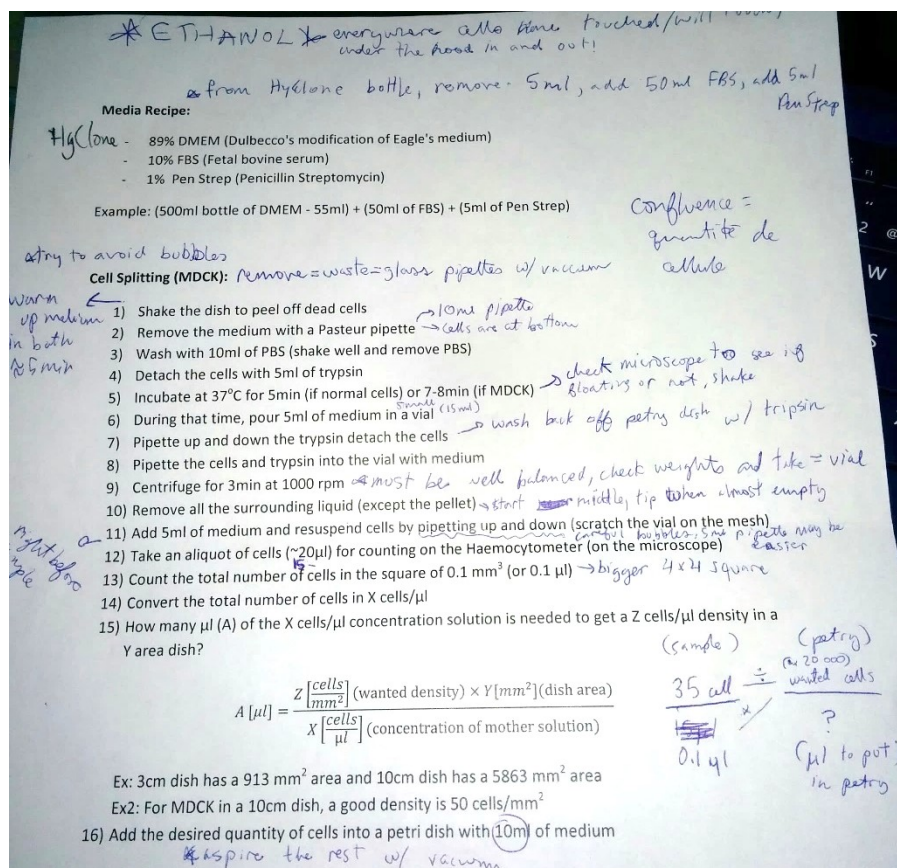 * ETHANOL * everywhere touched / will
under the hood in and out!
from HyClone bottle, remove 5ml, add 50ml FBS, add 5ml
Pen Strep
Media Recipe:
HyClone
- 89% DMEM (Dulbecco's modification of Eagle's medium)
- 10% FBS (Fetal bovine serum)
- 1% Pen Strep (Penicillin Streptomycin)
Example: (500ml bottle of DMEM - 55ml) + (50ml of FBS) + (5ml of Pen Strep)
confluence =
quantité de
cellule
try to avoid bubbles
Cell Splitting (MDCK): remove = waste = glass pipettes w/ vaccum
warm
up medium
in bath
≈ 5 min
1) Shake the dish to peel off dead cells
→ 10ml pipette
2) Remove the medium with a Pasteur pipette → cells are at bottom
3) Wash with 10ml of PBS (shake well and remove PBS)
4) Detach the cells with 5ml of trypsin
5) Incubate at 37°C for 5min (if normal cells) or 7-8min (if MDCK) → check microscope to see if
floating or not, shake
6) During that time, pour 5ml of medium in a small vial (15ml)
7) Pipette up and down the trypsin detach the cells → wash back off petry dish w/ tripsin
8) Pipette the cells and trypsin into the vial with medium
9) Centrifuge for 3min at 1000 rpm must be well balanced, check weights and take = vial
10) Remove all the surrounding liquid (except the pellet) → start middle, tip when almost empty
11) Add 5ml of medium and resuspend cells by pipetting up and down (scratch the vial on the mesh)
careful bubbles, 5ml pipette may be
easier
right before
12) Take an aliquot of cells (~20µl) for counting on the Haemocytometer (on the microscope)
15
13) Count the total number of cells in the square of 0.1 mm³ (or 0.1 µl) → bigger 4x4 square
14) Convert the total number of cells in X cells/µl
15) How many µl (A) of the X cells/µl concentration solution is needed to get a Z cells/µl density in a
Y area dish?
A [µl] = Z [cells/mm²] (wanted density) × Y[mm²](dish area) / X [cells/µl] (concentration of mother solution)
(sample) (petry)
20 000)
35 cell ÷ wanted cells
0.1 µl ?
(µl to put
in petry
Ex: 3cm dish has a 913 mm² area and 10cm dish has a 5863 mm² area
Ex2: For MDCK in a 10cm dish, a good density is 50 cells/mm²
16) Add the desired quantity of cells into a petri dish with 10ml of medium
aspire the rest w/ vacuum
F1
2
@
W